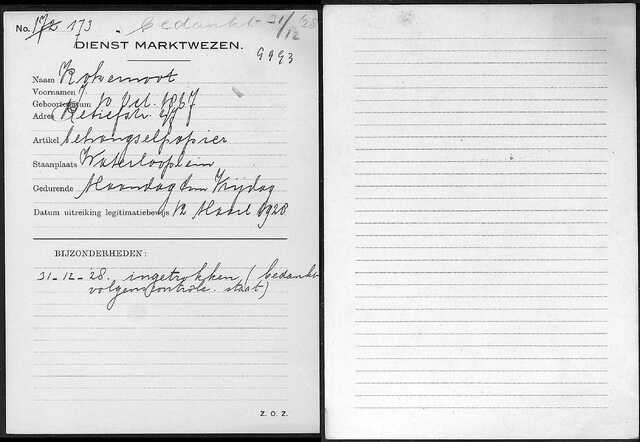 No. 172 173 Bedankt 31/12 '28
DIENST MARKTWEZEN.
9993
Naam
Voornamen
Geboortedatum 10 Oct. 1867
Adres Retiefstr.
Artikel behangselpapier
Staanplaats Waterlooplein
Gedurende Maandag t/m Vrijdag
Datum uitreiking legitimatiebewijs 12 Maart 1928
BIJZONDERHEDEN:
31-12-'28. ingetrokken (bedankt
volgens controle. staat)
Z. O. Z.